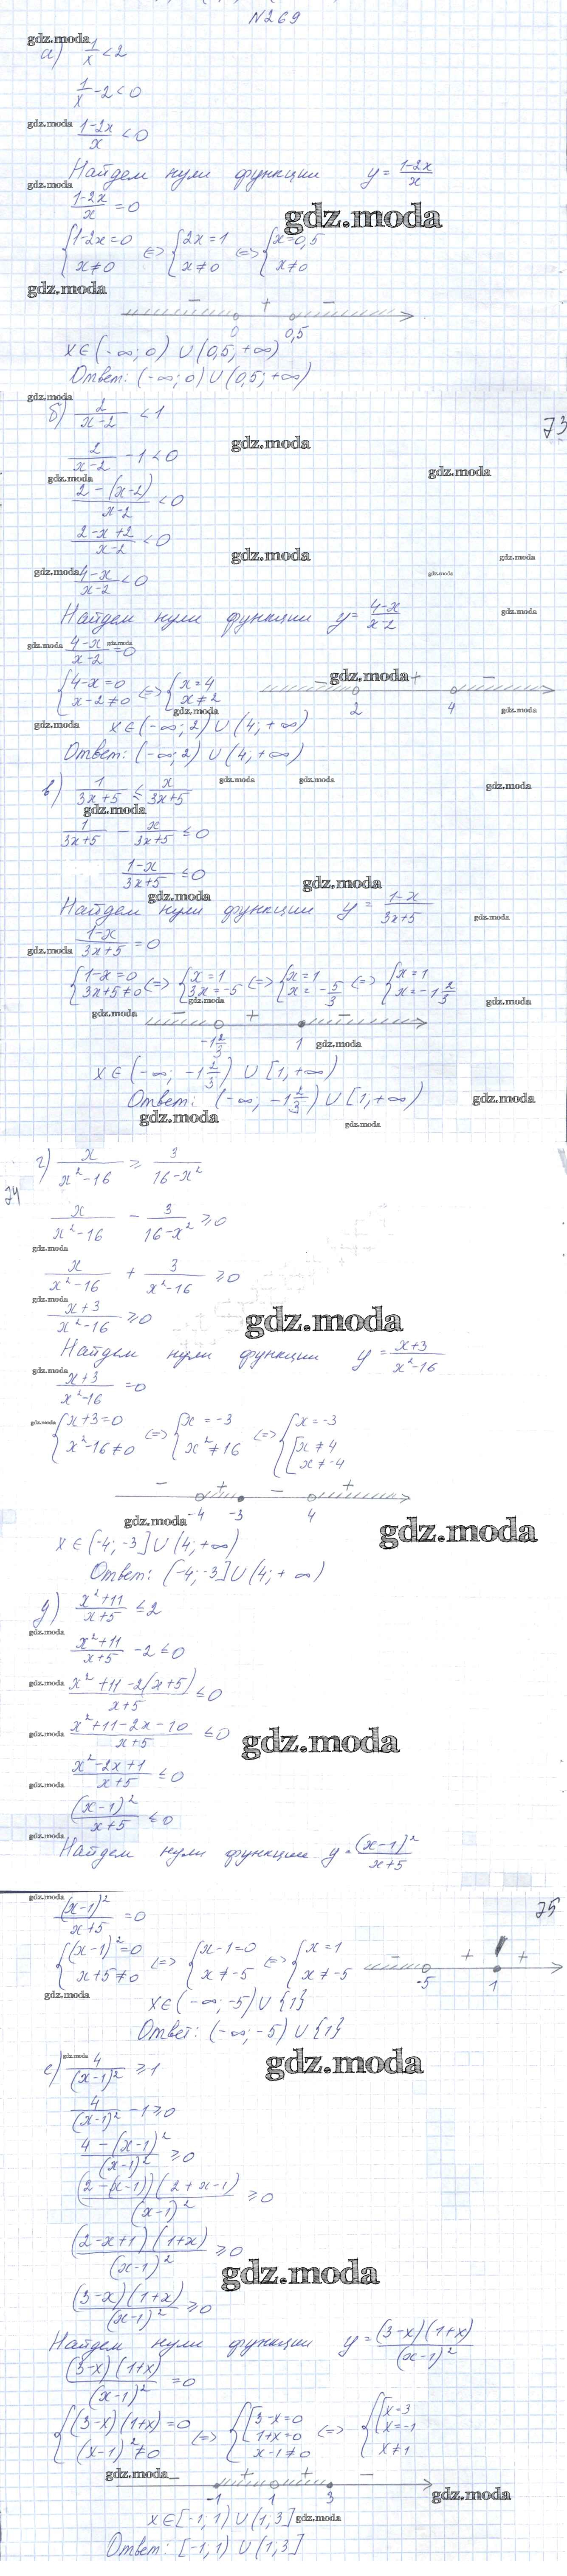 N269
gdz.moda
а) 1/x < 2
1/x - 2 < 0
gdz.moda
(1-2x)/x < 0
Найдем нули функции y = (1-2x)/x
gdz.moda
(1-2x)/x = 0
gdz.moda
{1-2x=0 x≠0 <=> {2x=1 x≠0 <=> {x=0,5 x≠0
gdz.moda
- + -
0 0,5
x∈(-∞;0)∪(0,5;+∞)
Ответ: (-∞;0)∪(0,5;+∞)
gdz.moda
б) 2/(x-2) < 1
73
2/(x-2) - 1 < 0
gdz.moda
gdz.moda
gdz.moda
(2-(x-2))/(x-2) < 0
(2-x+2)/(x-2) < 0
gdz.moda
gdz.moda
gdz.moda (4-x)/(x-2) < 0
gdz.moda
Найдем нули функции y = (4-x)/(x-2)
gdz.moda
gdz.moda (4-x)/(x-2) = 0
gdz.moda
{4-x=0 x-2≠0 <=> {x=4 x≠2
- gdz.moda + -
2 4
gdz.moda
gdz.moda
gdz.moda x∈(-∞;2)∪(4;+∞)
Ответ: (-∞;2)∪(4;+∞)
в) 1/(3x+5) ≤ x/(3x+5)
gdz.moda
gdz.moda
gdz.moda
gdz.moda
1/(3x+5) - x/(3x+5) ≤ 0
(1-x)/(3x+5) ≤ 0
gdz.moda
gdz.moda
Найдем нули функции y = (1-x)/(3x+5)
gdz.moda
gdz.moda (1-x)/(3x+5) = 0
{1-x=0 3x+5≠0 <=> {x=1 3x=-5 <=> {x=1 x=-5/3 <=> {x=1 x=-1 2/3
gdz.moda
gdz.moda
gdz.moda - + -
-1 2/3 1
gdz.moda
x∈(-∞; -1 2/3)∪[1,+∞)
Ответ: (-∞; -1 2/3)∪[1,+∞)
gdz.moda
gdz.moda
gdz.moda
г) x/(x²-16) ≥ 3/(16-x²)
74
x/(x²-16) - 3/(16-x²) ≥ 0
gdz.moda
x/(x²-16) + 3/(x²-16) ≥ 0
gdz.moda
(x+3)/(x²-16) ≥ 0
gdz.moda
Найдем нули функции y = (x+3)/(x²-16)
gdz.moda
(x+3)/(x²-16) = 0
gdz.moda {x+3=0 x²-16≠0 <=> {x=-3 x²≠16 <=> {x=-3 [x≠4 x≠-4
- + - +
-4 -3 4
gdz.moda
gdz.moda
x∈(-4;-3]∪(4;+∞)
Ответ: (-4;-3]∪(4;+∞)
д) (x²+11)/(x+5) ≤ 2
gdz.moda
(x²+11)/(x+5) - 2 ≤ 0
gdz.moda (x²+11-2(x+5))/(x+5) ≤ 0
gdz.moda (x²+11-2x-10)/(x+5) ≤ 0
gdz.moda
(x²-2x+1)/(x+5) ≤ 0
gdz.moda
(x-1)²/(x+5) ≤ 0
gdz.moda
Найдем нули функции y = (x-1)²/(x+5)
gdz.moda
(x-1)²/(x+5) = 0
75
{(x-1)²=0 x+5≠0 <=> {x-1=0 x≠-5 <=> {x=1 x≠-5
- + +
-5 1
gdz.moda
x∈(-∞;-5)∪{1}
Ответ: (-∞;-5)∪{1}
gdz.moda
gdz.moda
е) 4/(x-1)² ≥ 1
4/(x-1)² - 1 ≥ 0
(4-(x-1)²)/(x-1)² ≥ 0
((2-(x-1))(2+x-1))/(x-1)² ≥ 0
((2-x+1)(1+x))/(x-1)² ≥ 0
gdz.moda
((3-x)(1+x))/(x-1)² ≥ 0
Найдем нули функции y = ((3-x)(1+x))/(x-1)²
((3-x)(1+x))/(x-1)² = 0
{(3-x)(1+x)=0 (x-1)²≠0 <=> {[3-x=0 1+x=0 x-1≠0 <=> {[x=3 x=-1 x≠1
gdz.moda - + + -
-1 1 3
gdz.moda
x∈[-1;1)∪(1,3]
gdz.moda
Ответ: [-1,1)∪(1,3]